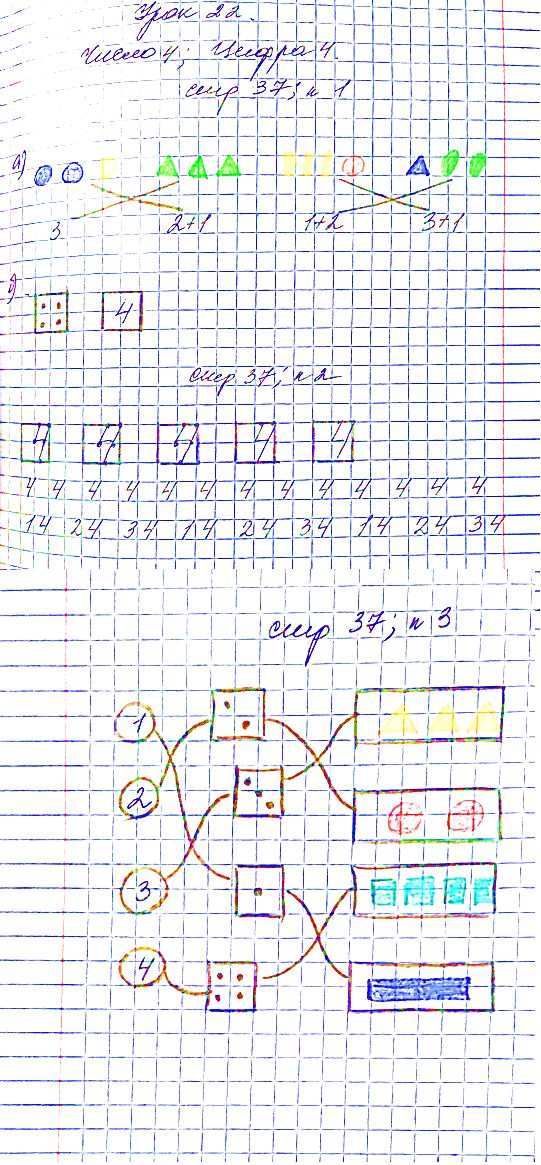 Урок 22.
Число 4; Цифра 4.
стр 37; п 1
а)
3 2+1 1+2 3+1
4
стр 37; п 2
4 4 4 4 4
4 4 4 4 4 4 4 4 4 4 4 4 4
14 24 34 14 24 34 14 24 34
стр 37; п 3
1
2
3
4